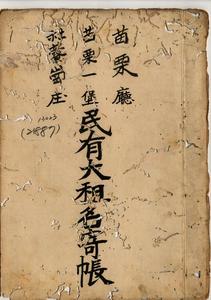 苗栗廳
苗栗一堡
社藔崗庄
民有大租名寄帳
(21887)